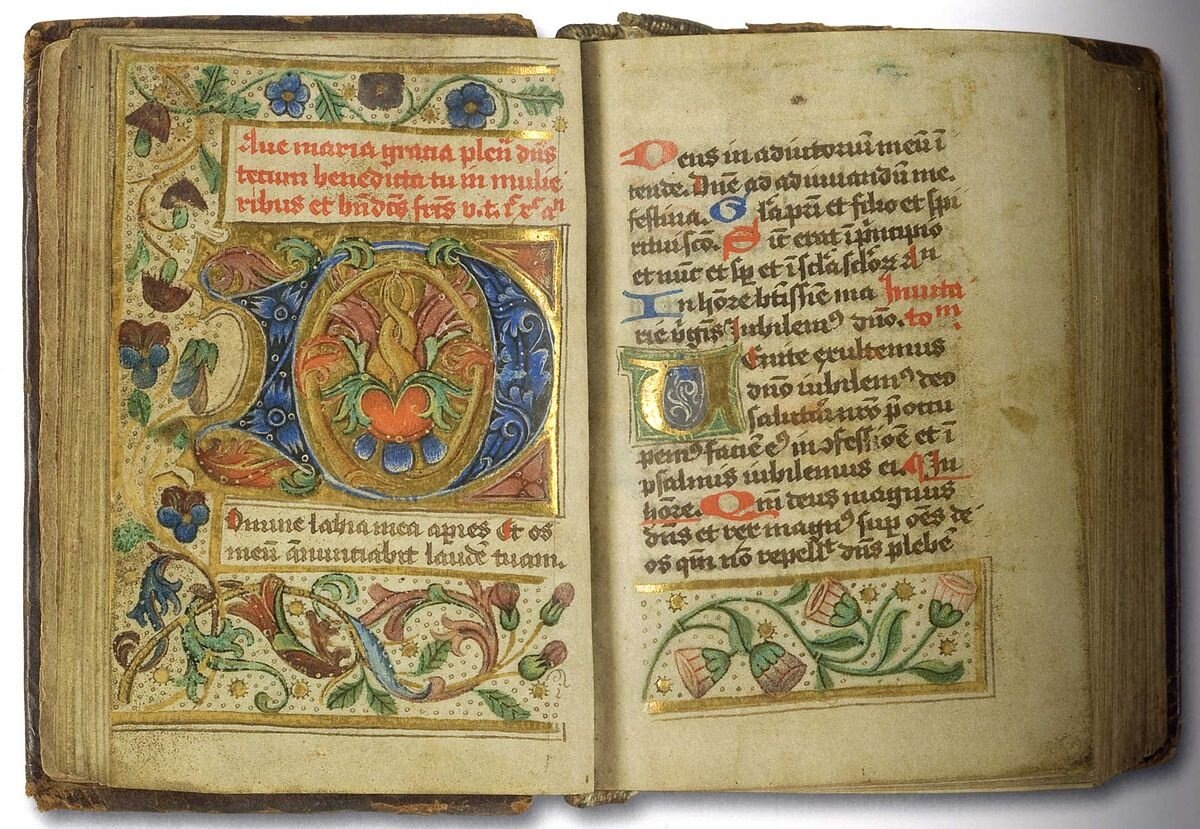 Aue maria gracia plen̄ dn̄s
tecum benedicta tu in mulie
ribus et bn̄dc̄s fr̄s v. t.
Domine labia mea apies Et os
meū an̄nunciabit laudē tuam.
Deus in adiutoriū meū ī
tende. Dn̄e ad adiuuandū me.
festina. Gl̄a pr̄i et filio et spi
ritui sc̄o. Sic̄ erat ī principio
et nūc et sp̄ et ī sc̄la sc̄lorꝫ an̄
In hōre bt̄issīe ma Inuita
rie v̄gīs Iubilemꝰ dn̄o. toꝛm̄.
Uenite exultemus
dn̄o iubilemꝰ deo
salutari nr̄o p̄occu
pemꝰ faciē eꝰ in ꝯfessiōe et ī
psalmis iubilemus ei. In
hōre. Qm̄ deus magnus
dn̄s et rex magnꝰ sup om̄s de
os qm̄ nō repellt̄ dn̄s plebē